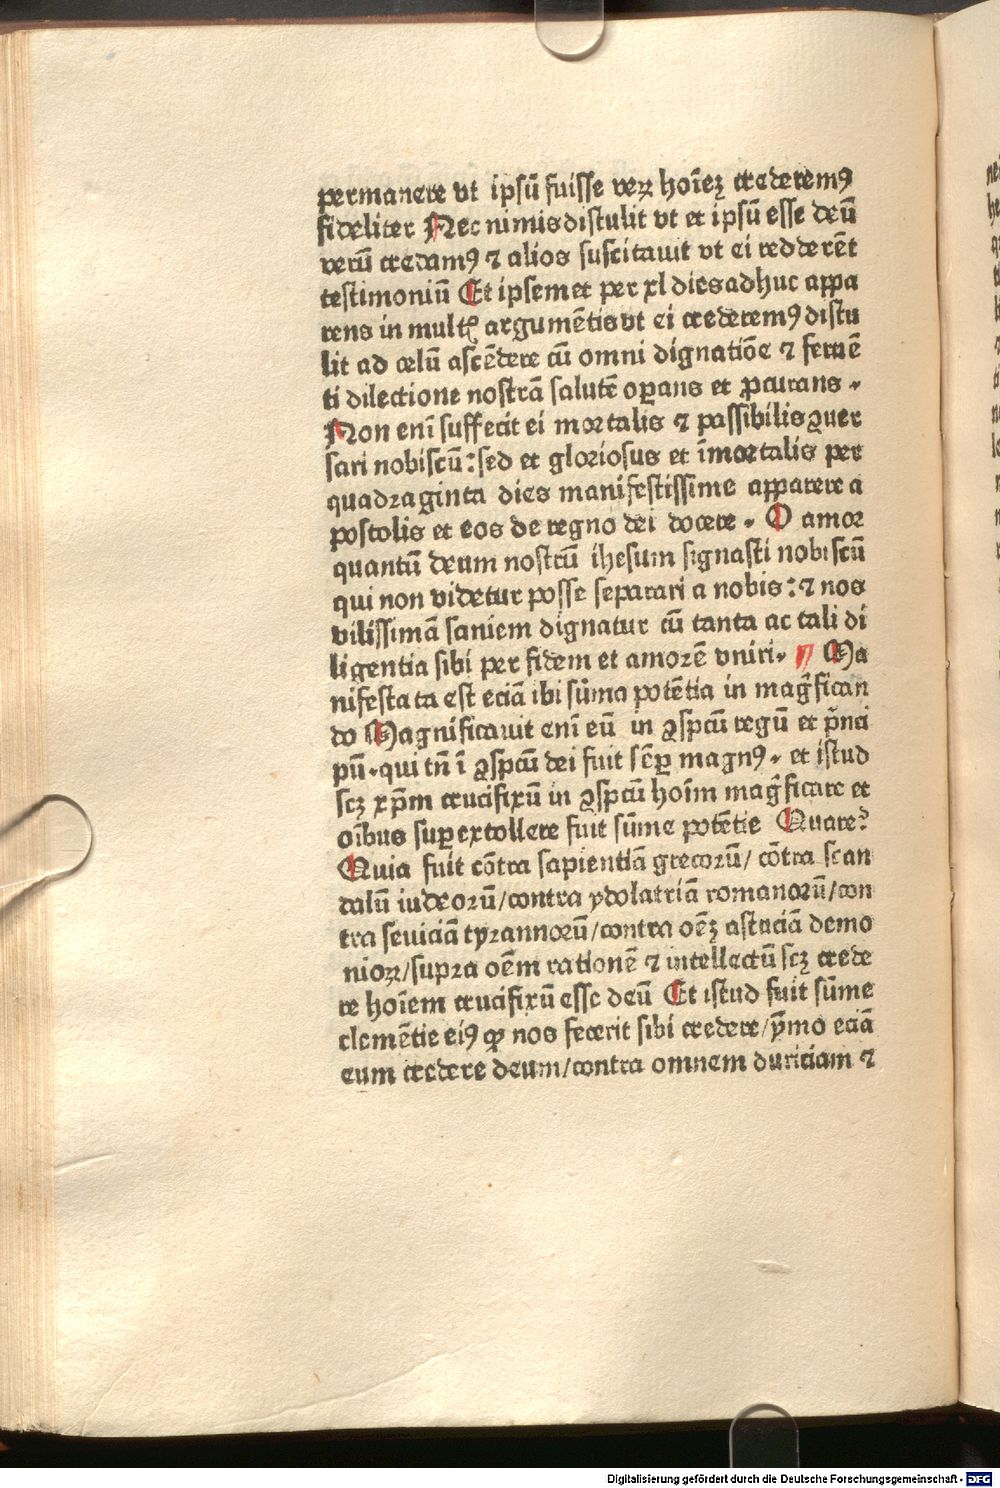 permanere vt ipsū fuisse verꝝ hoīeꝫ crederemꝰ
fideliter Nec nimis distulit vt et ipsū esse deū
verū credamꝰ ⁊ alios suscitauit vt ei redderēt
testimoniū Et ipsemet per xl dies adhuc appa
rens in multꝭ argumētis vt ei crederemꝰ distu
lit ad celū ascēdere cū omni dignatiōe ⁊ feruē
ti dilectione nostrā salutē oꝑans et ꝓcurans .
Non enī suffecit ei mortalis ⁊ passibilis ꝯuer
sari nobiscū : sed et gloriosus et īmortalis per
quadraginta dies manifestissime apparere a
postolis et eos de regno dei docere . O amor
quantū deum nostrū ihesum signasti nobiscū
qui non videtur posse separari a nobis : ⁊ nos
vilissimā saniem dignatur cū tanta ac tali di
ligentia sibi per fidem et amorē vniri . Ma
nifestata est eciā ibi sūma potētia in magn̄fican
do Magnificauit enī eū in ꝯspcū regū et pn̄ci
pū . qui tn̄ ī ꝯspcū dei fuit sēꝑ magnꝰ . et istud
scꝫ xp̄m crucifixū in ꝯspcū hoīm magn̄ficare et
oībus suꝑextollere fuit sūme potētie Quare ?
Quia fuit cōtra sapientiā grecorū / cōtra scan
dalū iudeorū / contra ydolatriā romanorū / con
tra seuiciā tyrannorū / contra oēꝫ astuciā demo
nioꝝ / supra oēm rationē ⁊ intellectū scꝫ crede
re hoīem crucifixū esse deū Et istud fuit sūme
clemētie eiꝰ ꝙ nos fecerit sibi credere / ymo eciā
eum credere deum / contra omnem duriciam ⁊
Digitalisierung gefördert durch die Deutsche Forschungsgemeinschaft - DFG